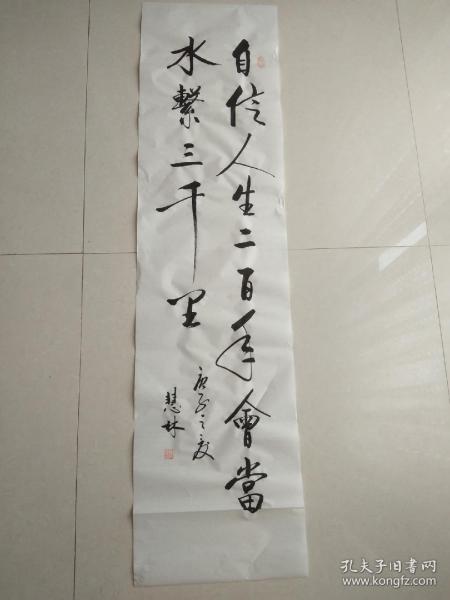 自信人生二百年會當
水擊三千里
庚子之夏
慧林
孔夫子旧书网
www.kongfz.com